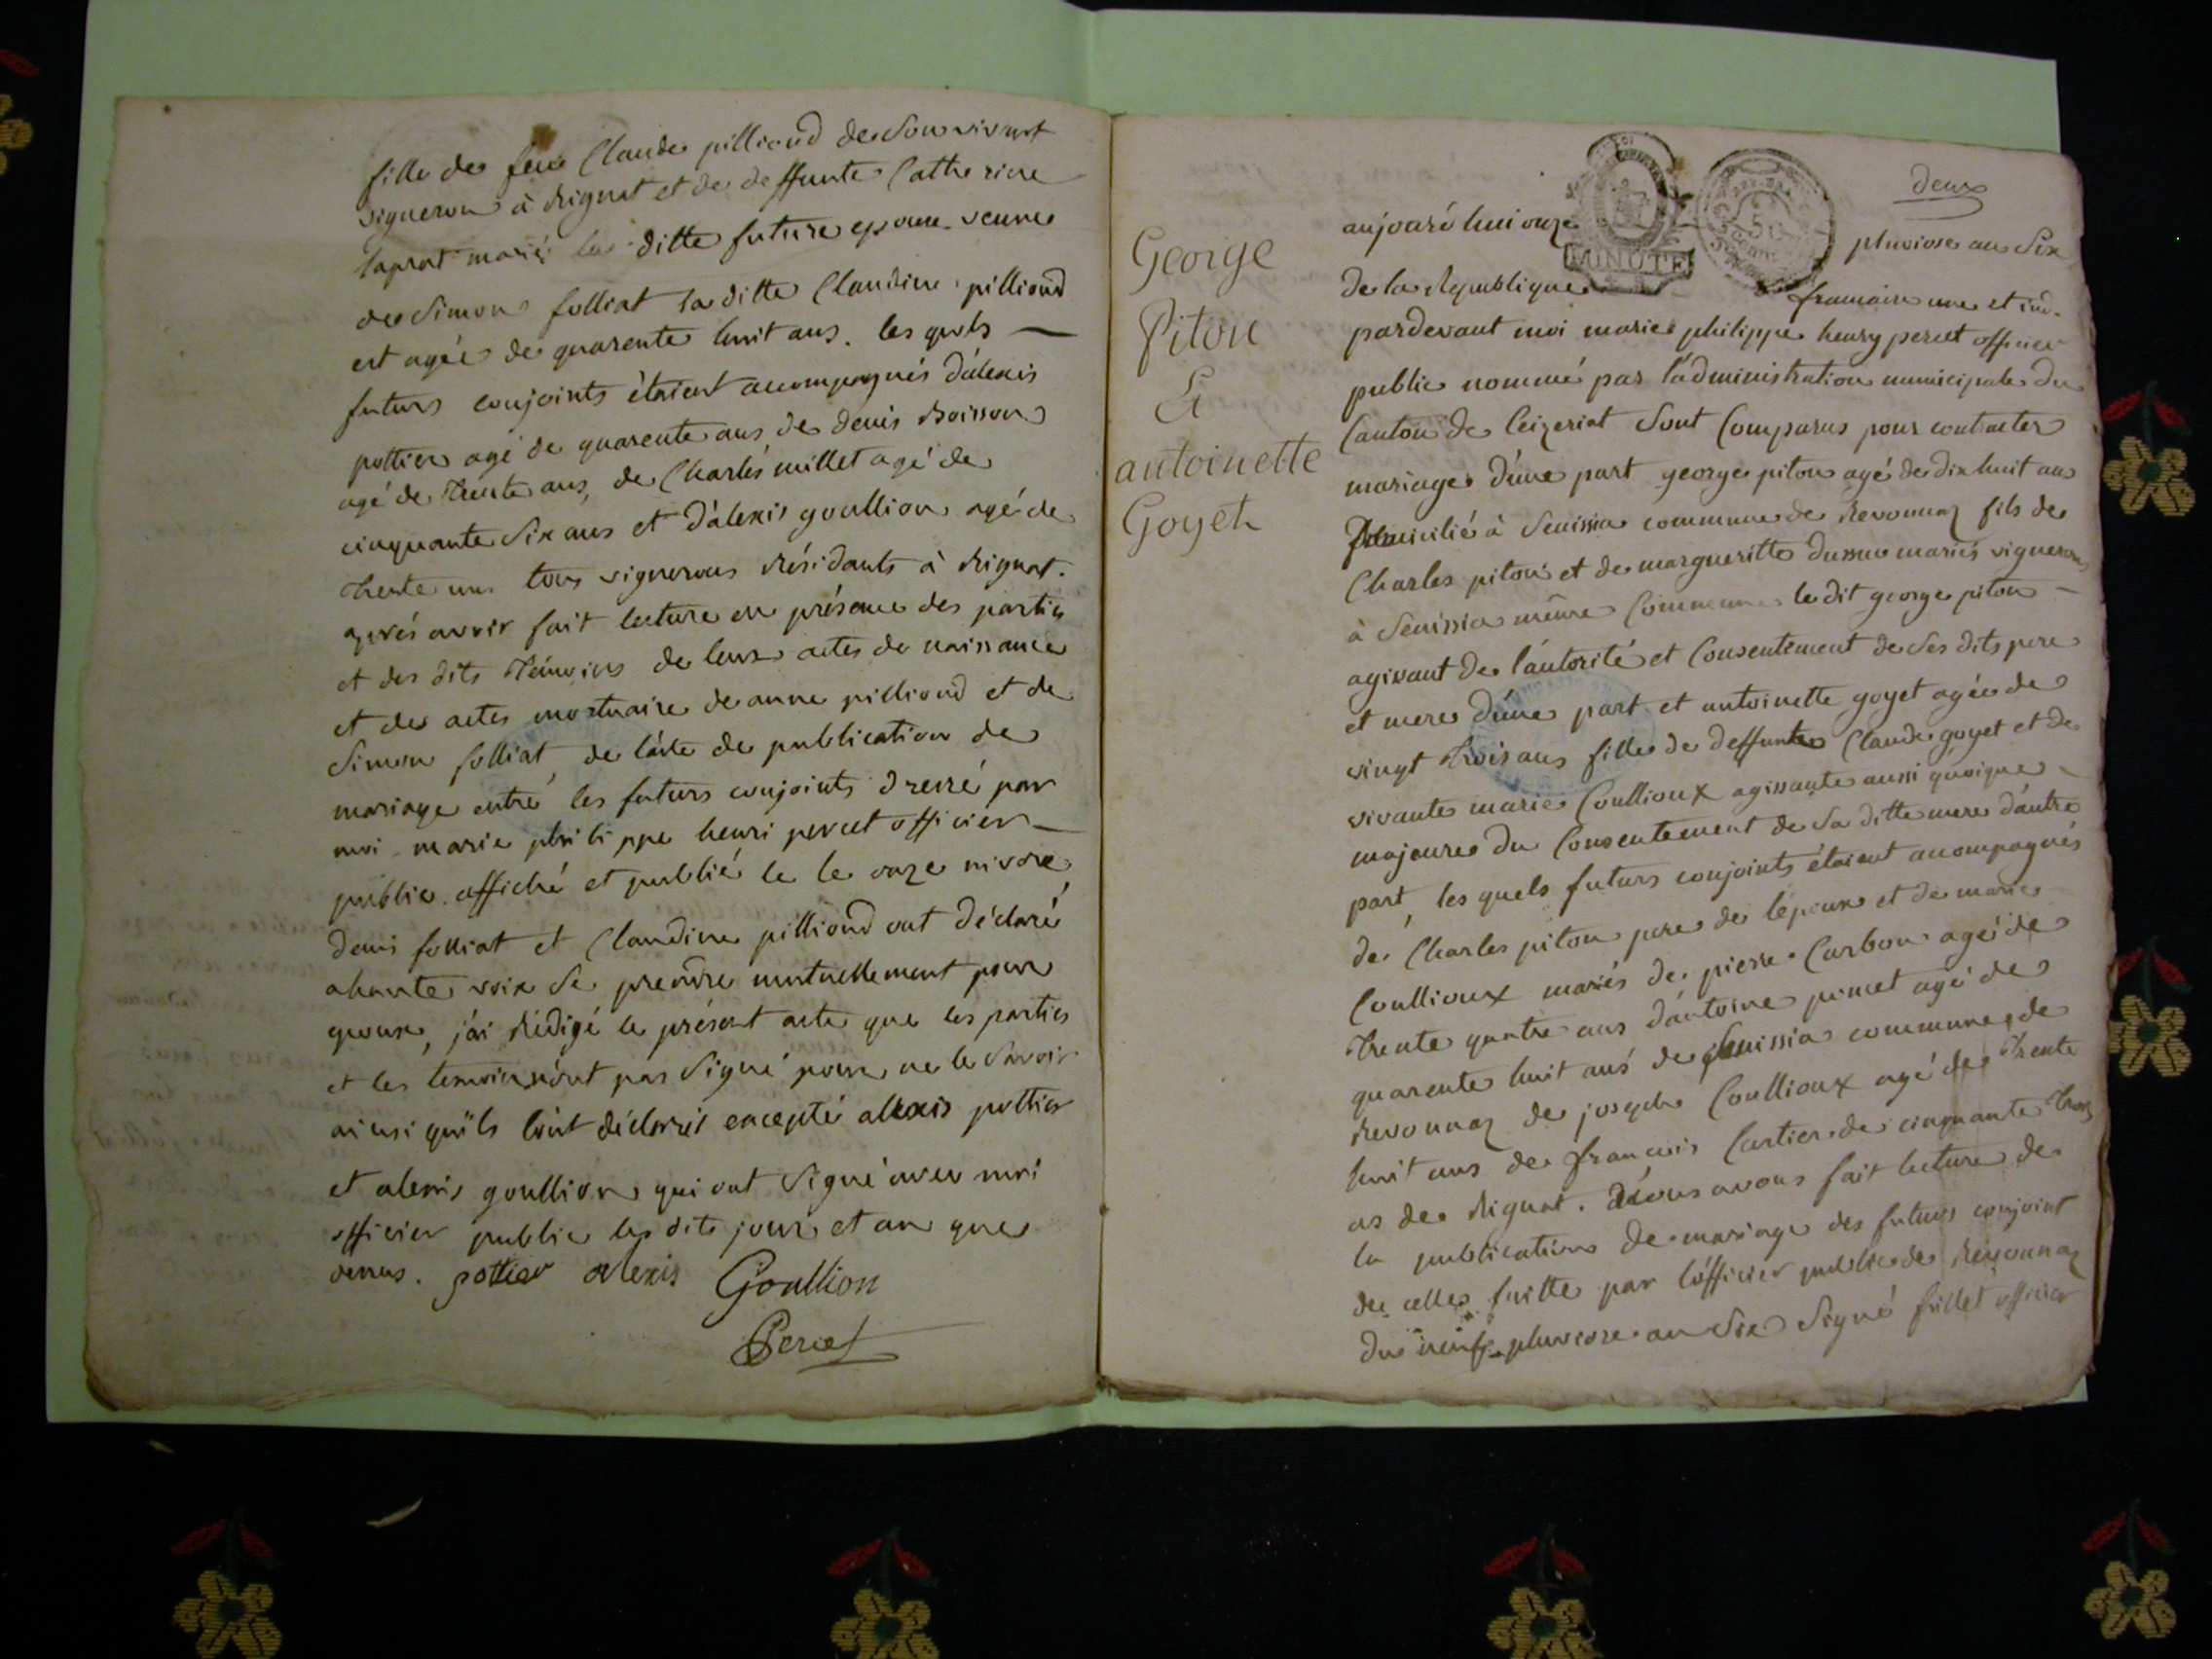 fille de feu Claude pilliond de Son vivant
vigneron à Rignat et de deffunte Catherine
laprat mariés la ditte future epouse veuve
de Simon folliat la ditte Claudine pilliond
est agée de quarente huit ans. les quels —
futurs conjoints étaient accompagnés d'alexis
pottier agé de quarente ans, de denis Boisson
agé de trente ans, de Charles millet agé de
cinquante Six ans et d'alexis goullion agé de
trente un tous vignerons Résidants à Rignat.
aprés avoir fait lecture en présence des parties
et des dits témoins de leurs actes de naissance
et des actes mortuaire de anne pilliond et de
Simon folliat, de l'acte de publication de
mariage entre les futurs conjoints dressé par
moi marie philippe henri percet officier —
public affiché et publié le le onze nivose
denis folliat et Claudine pilliond ont déclaré
ahaute voix Se prendre mutuellement pour
epoux, j'ai Rédigé le présent acte que les parties
et les temoins n'ont pas Signé pour ne le Savoir
ainsi qu'ils l'ont déclarés excepté alexis pottier
et alexis goullion qui ont Signé avec moi
officier public les dits jour et an que
dessus. pottier alexis Goullion
Percet
deux
George
Piton
Et
antoinette
Goyet
MINUTE
aujourd'hui onze pluviose an Six
de la Republique francaise une et ind.
pardevant moi marie philippe henry percet officier
public nommé par l'administration municipale du
Canton de Ceizeriat Sont Comparus pour contracter
mariage d'une part george piton agé de dix huit ans
Domicilié à Senissia commune de Revonnaz fils de
Charles piton et de margueritte mariés vignerons
à Senissia même Commune le dit george piton —
agissant de l'autorité et Consentement de Ses dits pere
et mere d'une part et antoinette goyet agée de
vingt trois ans fille de deffunte Claude goyet et de
vivante marie Coullioux agissante aussi quoique
majeure du Consentement de Sa ditte mere d'autre
part, les quels futurs conjoints étoient accompagnés
de Charles piton pere de l'époux et de marie
Coullioux mariés de pierre Carbon agé de
trente quatre ans d'antoine agé de
quarente huit ans de Senissia commune de
Revonnaz de joseph Coullioux agé de trente
huit ans de francois Cartier de cinquante trois
as de Rignat. Nous avons fait lecture de
la publication de mariage des futurs conjoint
de celle faitte par l'officier public de Revonnaz
du neuf pluviose an Six Signé fillet officier